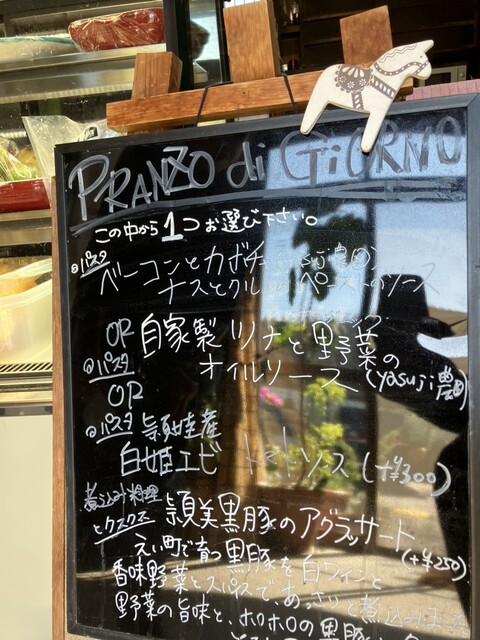 PRANZO di GiORNO
この中から1つお選び下さい。
パスタ
ベーコンとカボチャ
ナスとクル ペーストのソース
OR
自家製ツナと野菜の
オイルソース (yasuji農園)
パスタ
OR
パスタ 頴娃産
白姫エビ トマトソース (+¥300)
煮込み料理
とクスクス 頴美黒豚のアグラッサート
(+¥250)
えい町で育つ黒豚を白ワインと
香味野菜とスパイスで、あっさりと煮込みました
野菜の旨味と、ホロホロの黒豚